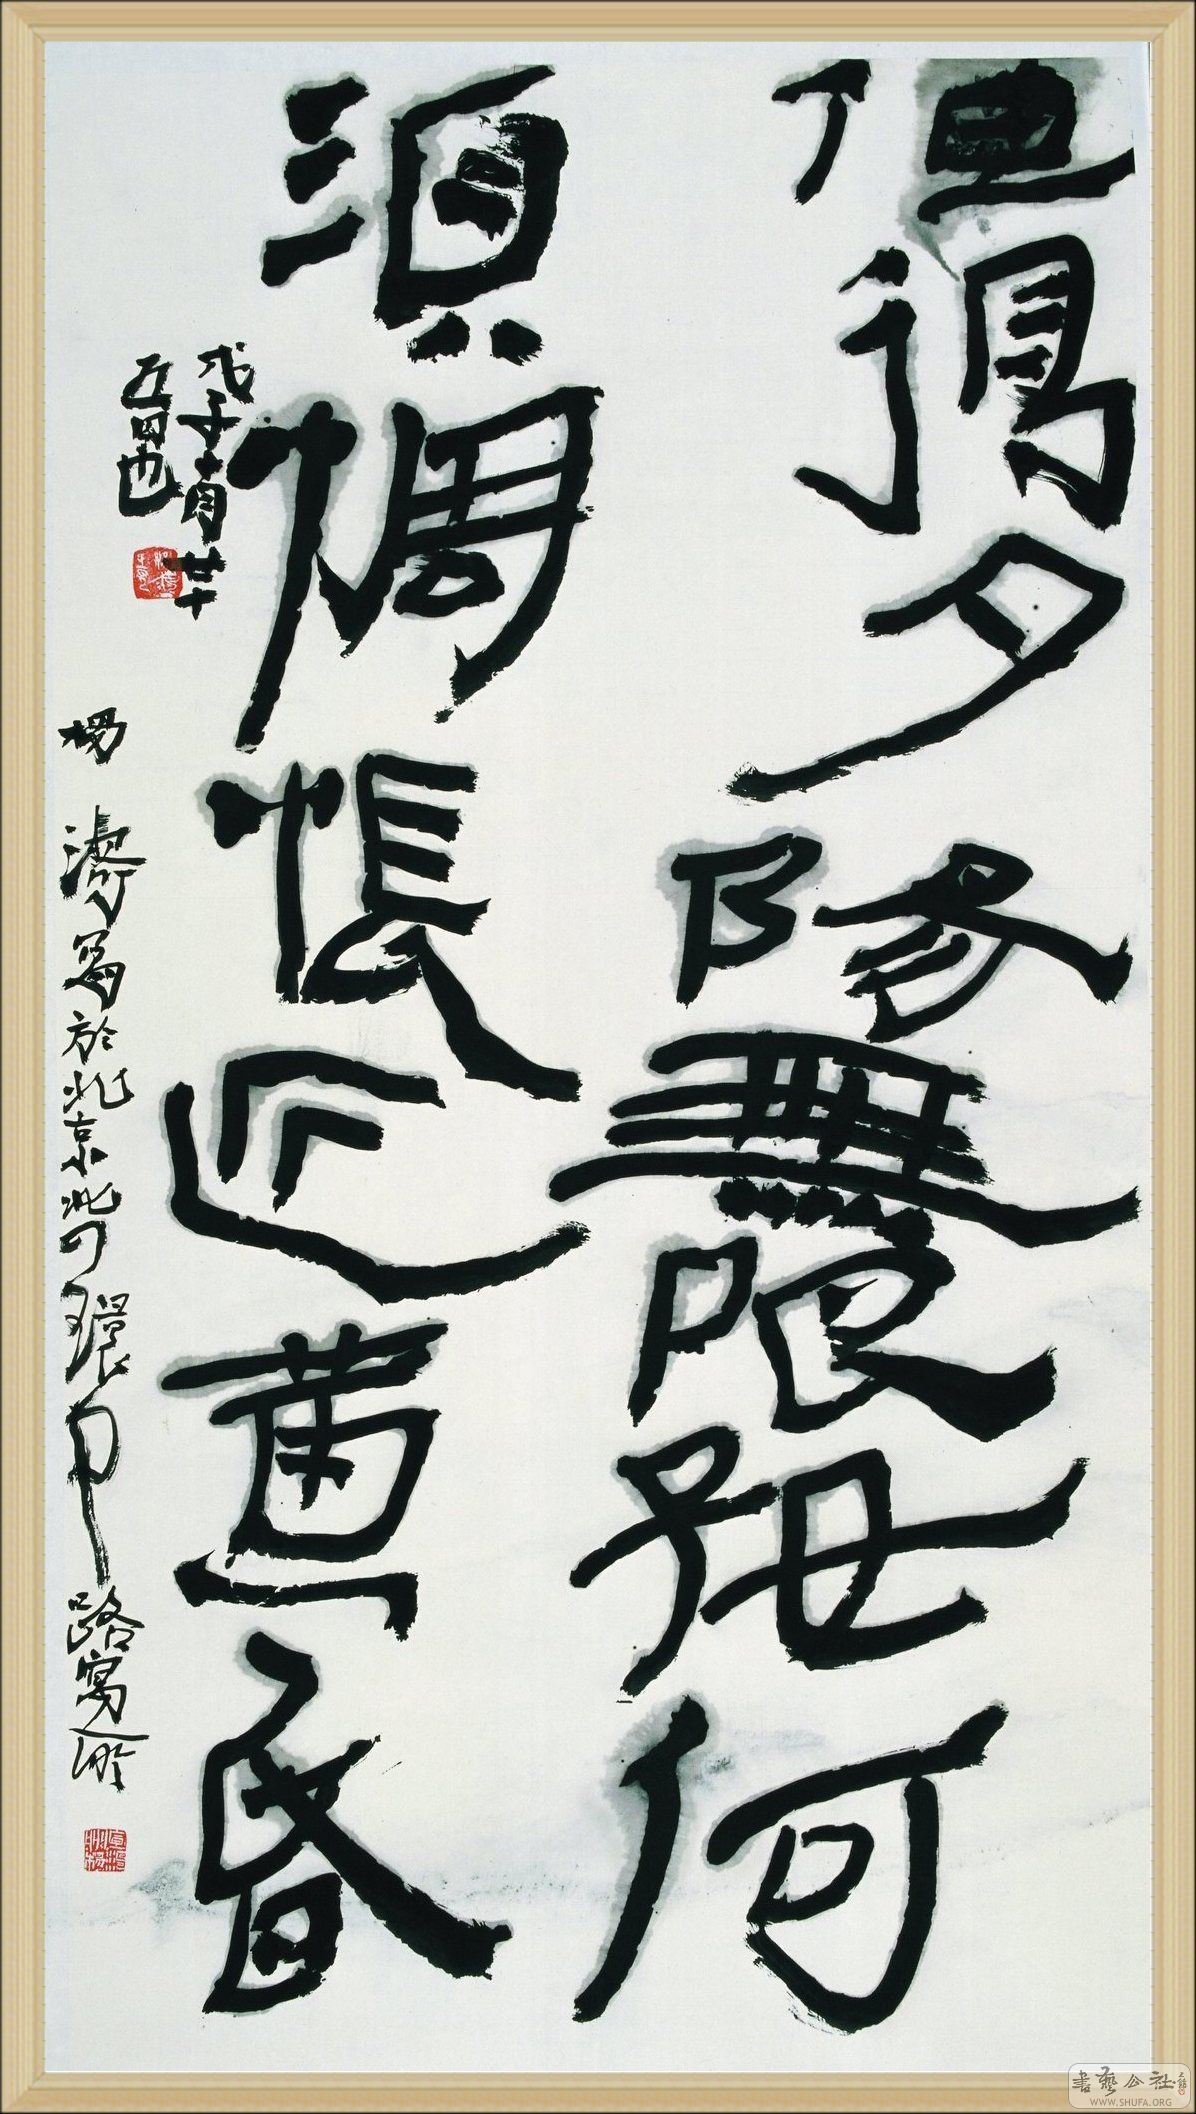 但得夕陽無限好何
須惆悵近黃昏
戊子十月廿
五日也
楊濤寫於北京北四環中路寓所
書藝公社
WWW.SHUFA.ORG